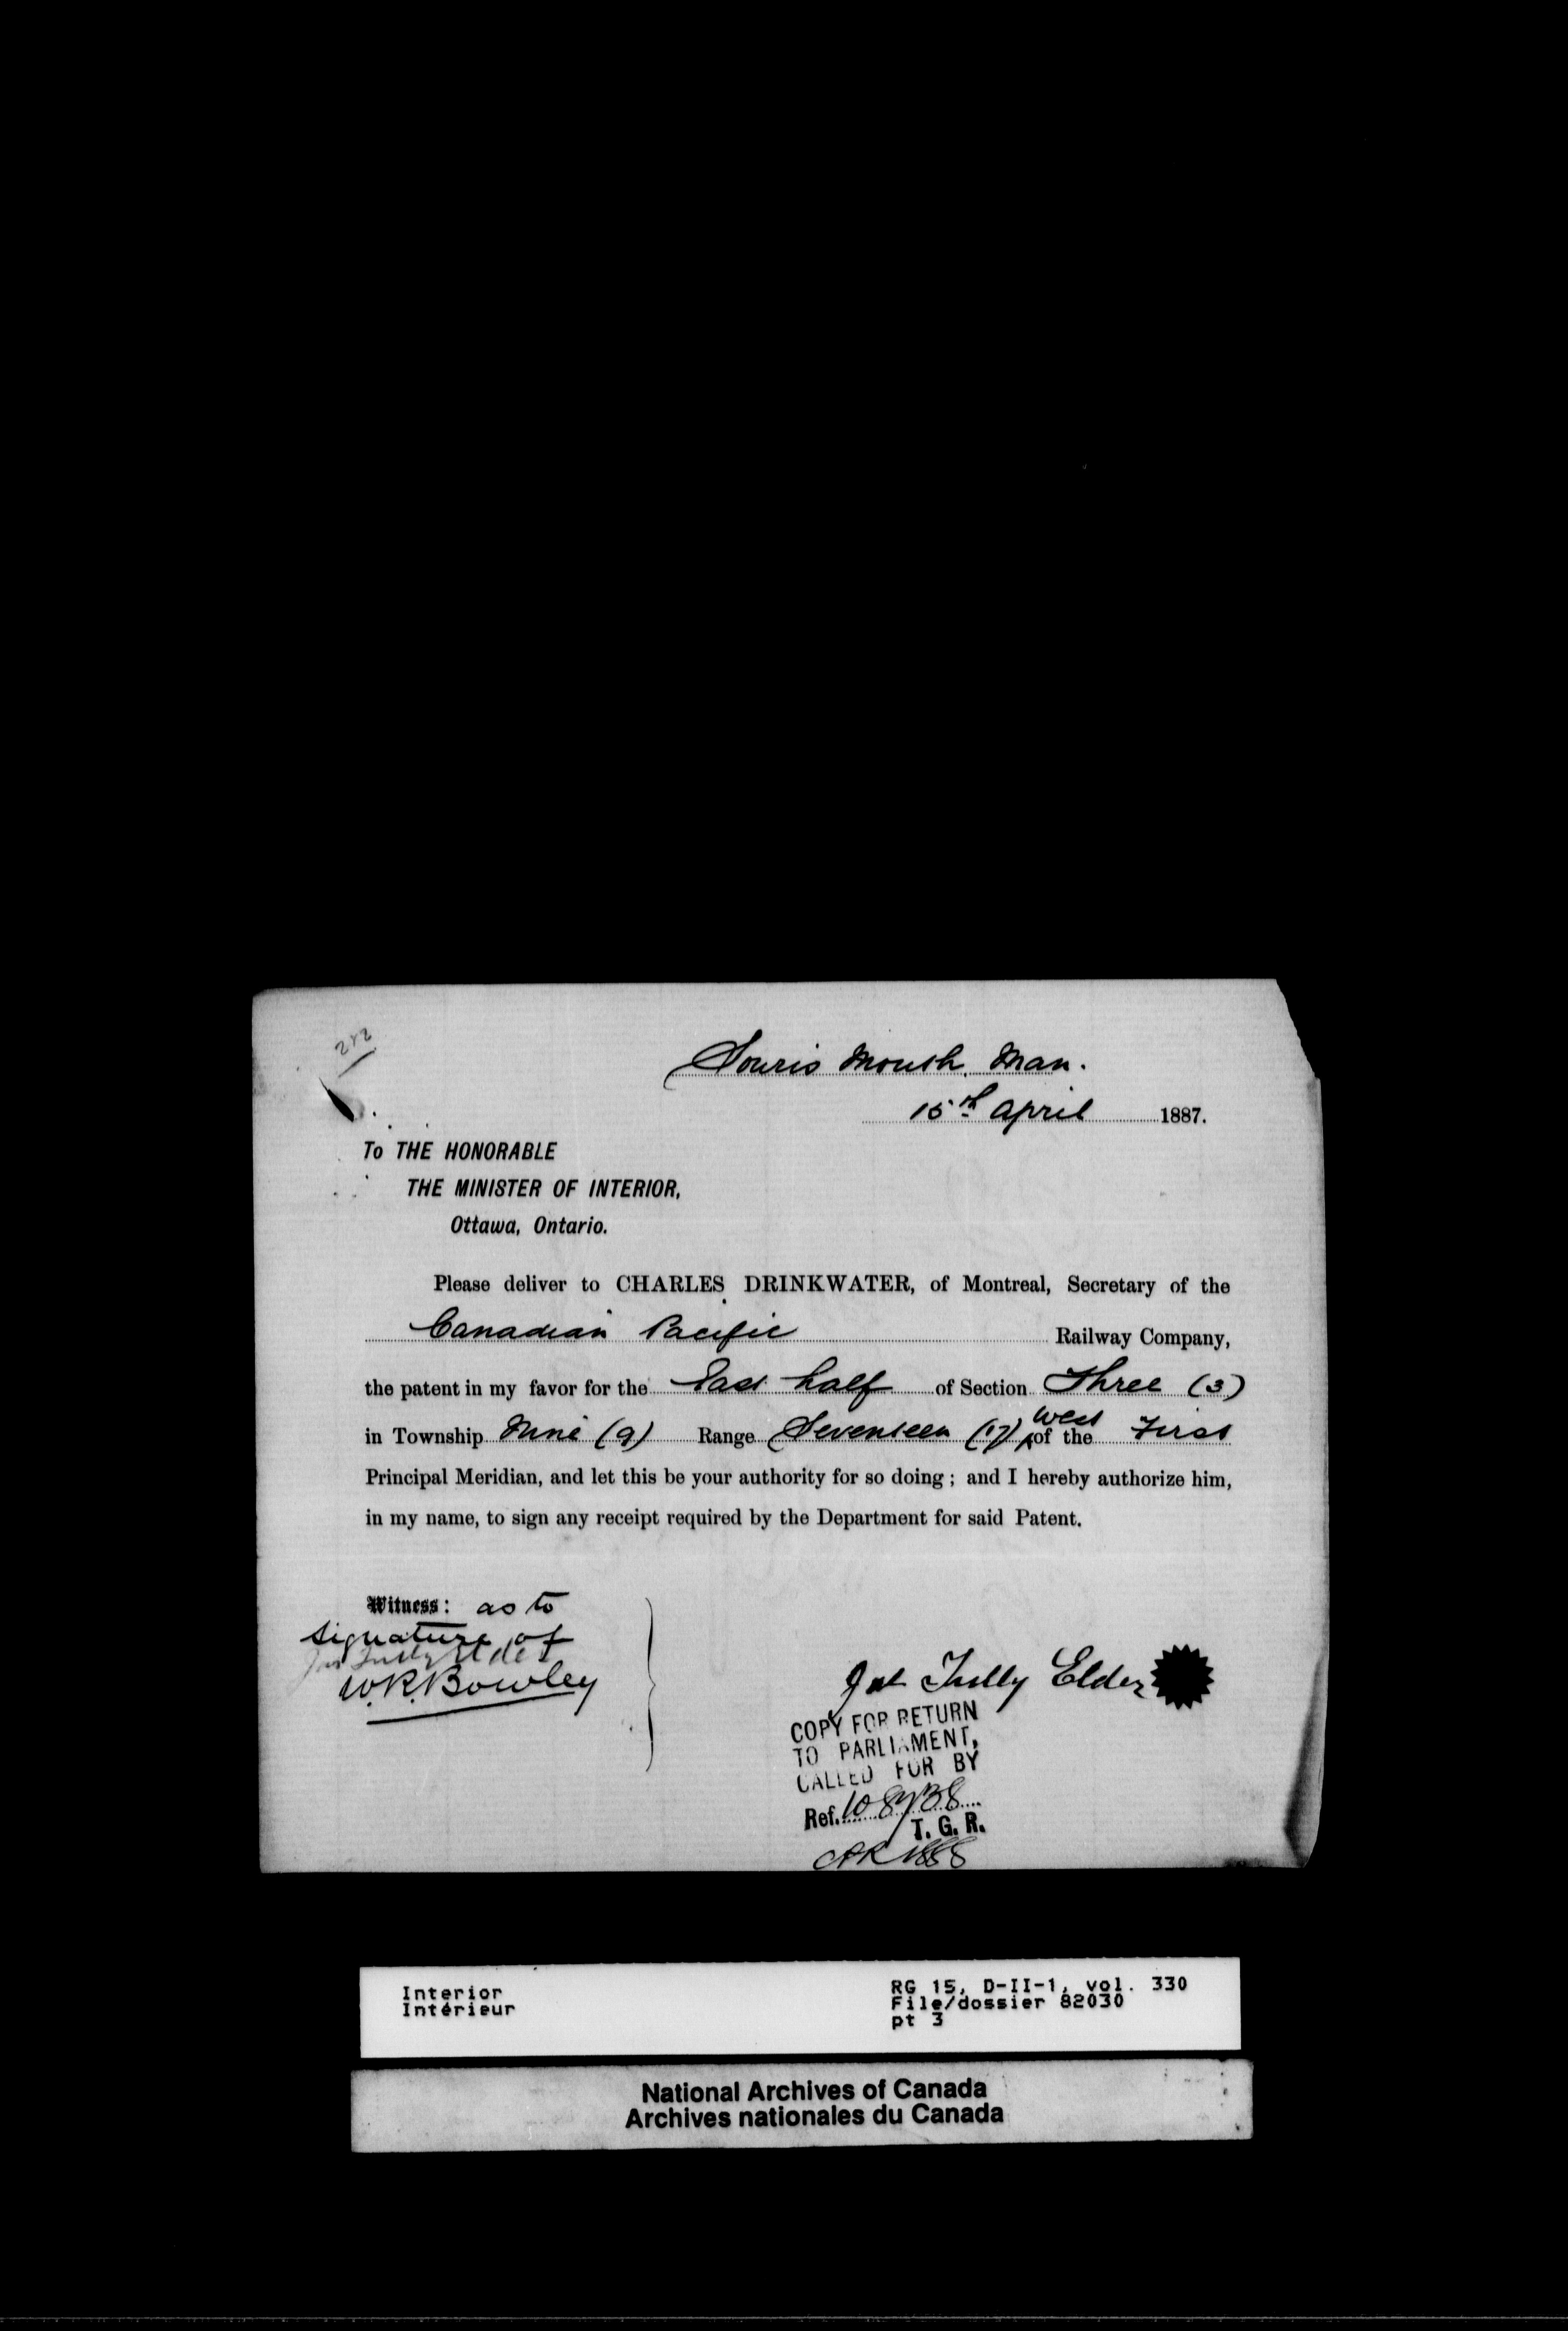 212
Souris Mouth, Man.
15th April 1887.
To THE HONORABLE
THE MINISTER OF INTERIOR,
Ottawa, Ontario.
Please deliver to CHARLES DRINKWATER, of Montreal, Secretary of the
Canadian Pacific Railway Company,
the patent in my favor for the East half of Section Three (3)
in Township Nine (9) Range Seventeen (17) West of the First
Principal Meridian, and let this be your authority for so doing; and I hereby authorize him,
in my name, to sign any receipt required by the Department for said Patent.
Witness: as to
signature of
Jas Tully Elder
W. R. Bowley
Jas Tully Elder
COPY FOR RETURN
TO PARLIAMENT,
CALLED FOR BY
Ref.
T. G. R.
1888
Interior
Intérieur
RG 15, D-II-1, vol. 330
File/dossier 82030
pt 3
National Archives of Canada
Archives nationales du Canada